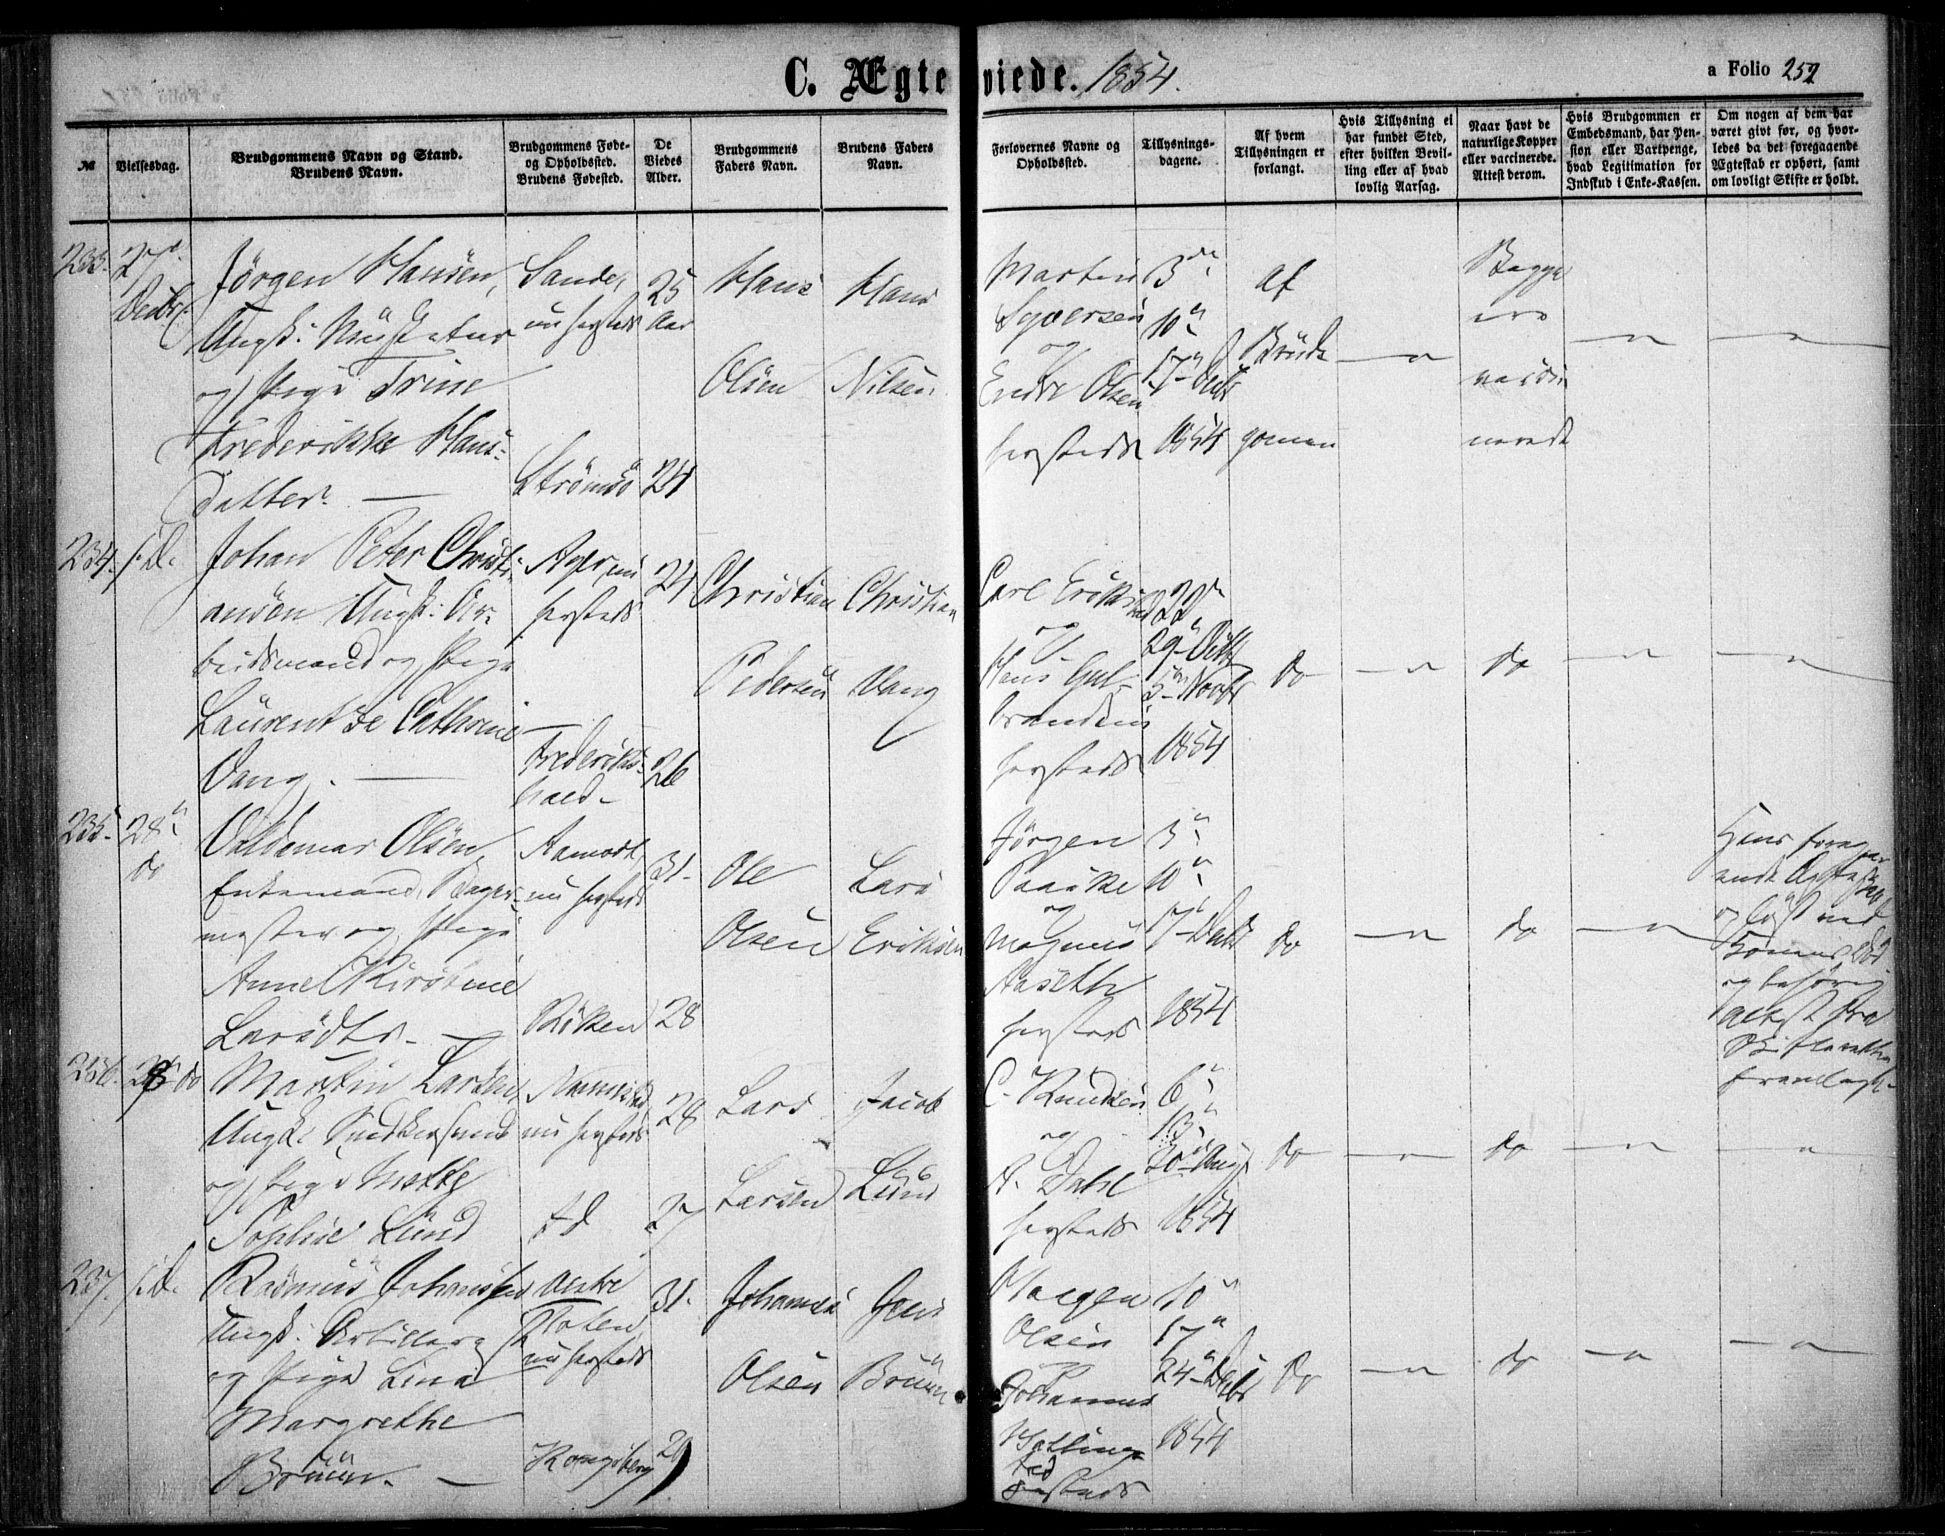 C. Ægteviede. 1854.
a Folio 252
№
Vielsesdag.
Brudgommens Navn og Stand.
Brudens Navn.
Brudgommens Føde-
og Opholdssted.
Brudens Fødested.
De
Viedes
Alder.
Brudgommens
Faders Navn.
Brudens Faders
Navn.
Forlovernes Navne og
Opholdssted.
Tillysnings-
dagene.
Af hvem
Tillysningen er
forlangt.
Hvis Tillysning ei
har fundet Sted,
efter hvilken Bevil-
ling eller af hvad
lovlig Aarsag.
Naar havt de
naturlige Kopper
eller vaccinerede.
Attest derom.
Hvis Brudgommen er
Embedsmand, har Pen-
sion eller Vartpenge,
hvad Legitimation for
Indskud i Enke-Kassen.
Om nogen af dem har
været givt før, og hvor-
ledes da det foregaaende
Ægteskab er ophørt, samt
om lovligt Skifte er holdt.
233. 27de
Decbr.
Jørgen Hansen,
Ungk:
og Pige Trine
Frederikke Hans-
datter. —
Sande,
nu hersteds
Strömsö
25
Aar
24
Hans
Olsen
Hans
Nilsen
Martin
Syversen
og
Endre Olsen
hersteds
3de
10n
17n Decbr
1854
af
Brud-
gomen
Begge
ere
vacci-
nerede
234. s. D.
Johan Peter Christi-
ansen Ungk: Ar-
beidsmand og Pige
Laurentze Cathrine
Vang. —
Ager, nu
hersteds
Frederiks-
hald.
24
26
Christian
Pedersen
Christian
Vang
Carl Eriksen
og
Hans Gul-
brandsen
hersteds
22de
29n Octbr
5te Novbr
1854
do
do
235. 28n
do
Valdemar Olsen
Enkemand, Bager-
mester og Pige
Anne Kirstine
Larsdtr. —
Aamodt,
nu hersteds
Röken
31.
28
Ole
Olsen
Lars
Eriksen
Jørgen
Paaske
og
Magnus
Aaseth
hersteds
3n
10n
17n Decbr
1854
do
do
Hans foregaa-
ende Ægteskab
og løst ved
Konens Død
og behørig
attest fra
Skifteretten
fremlagt.
236. 28 do
Martin Larsen
Ungk: Snedkersvend
og Pige Mette
Sophie Lund
nu hersteds
28
27
Lars
Larsen
Jacob
Lund
C. Knudsen
og
A. Dahl
hersteds
6n
13n
20n Aug
1854
do
do
237. s. D.
Rasmus Johannesen
Ungk: Artillerist
og Pige Lina
Margrethe
Brüun. —
Vestre
Toten,
nu hersteds
Kongsberg
31.
29
Johannes
Olsen
Jens
Brüun
Haagen
Olsen
og
Johannes
hersteds
10n
17n
24n Decbr
1854
do
do